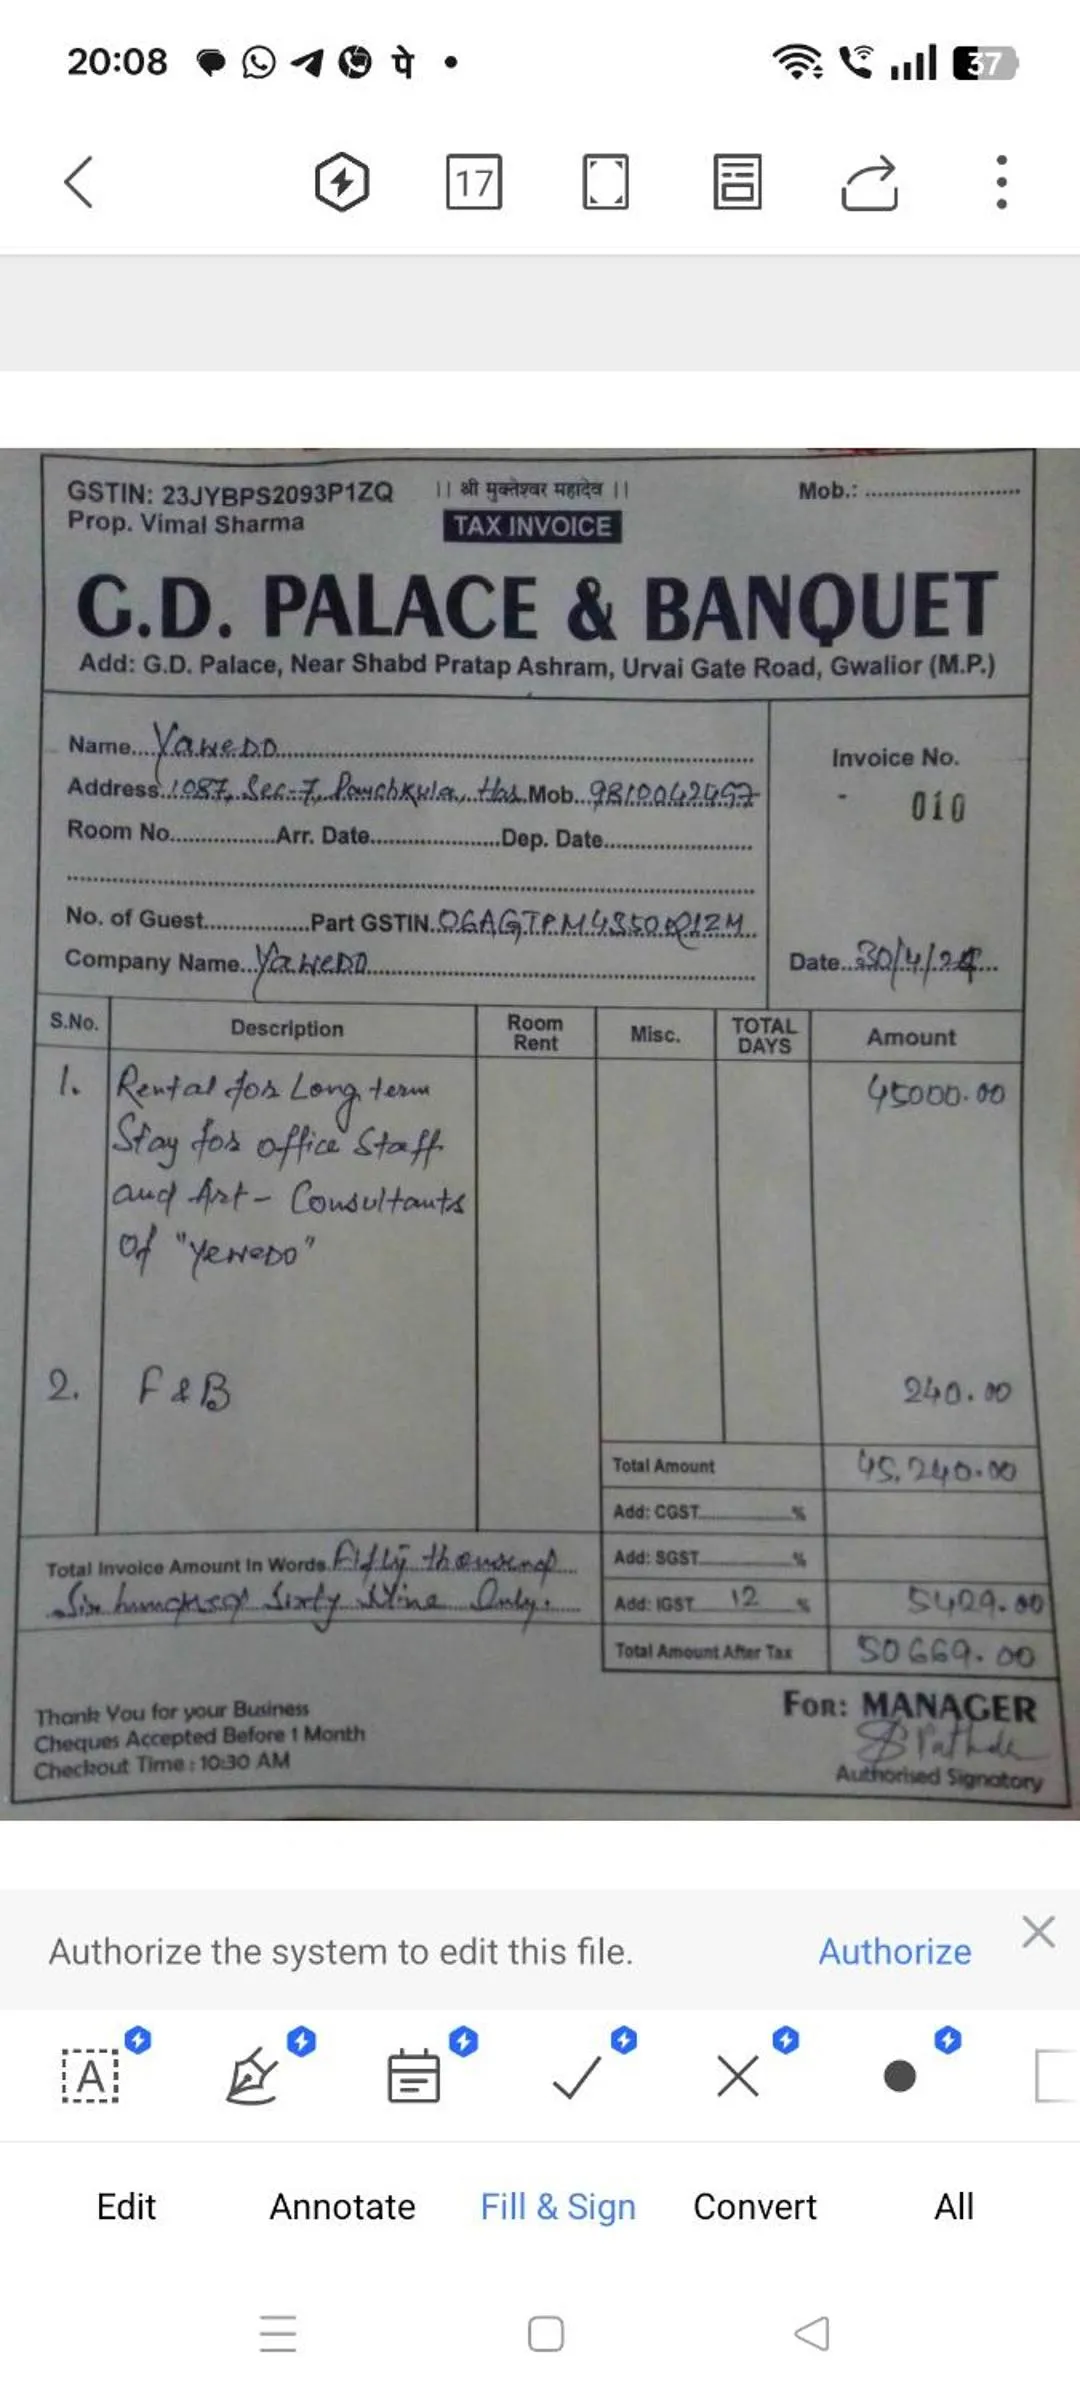 20:08 पे 37
17
GSTIN: 23JYBPS2093P1ZQ || श्री मुक्तेश्वर महादेव || Mob.:
Prop. Vimal Sharma TAX INVOICE
G.D. PALACE & BANQUET
Add: G.D. Palace, Near Shabd Pratap Ashram, Urvai Gate Road, Gwalior (M.P.)
Name.... YaweDO Invoice No.
Address 1087, Sec-7, Panchkula, Har Mob. 9810042457 - 010
Room No. Arr. Date. Dep. Date.
No. of Guest. Part GSTIN. 06AGTPM4350Q1ZM
Company Name. YaweDO Date. 30/4/24
S.No. Description Room Rent Misc. TOTAL DAYS Amount
1. Rental for Long term 45000.00
Stay for office Staff
and Art - Consultants
Of "YeweDO"
2. F & B 240.00
Total Amount 45,240.00
Add: CGST %
Total Invoice Amount In Words. Fifty thousand Add: SGST %
Six hundred Sixty Nine Only. Add: IGST 12 % 5429.00
Total Amount After Tax 50669.00
Thank You for your Business For: MANAGER
Cheques Accepted Before 1 Month
Checkout Time : 10:30 AM Authorised Signatory
Authorize the system to edit this file. Authorize
A
Edit Annotate Fill & Sign Convert All